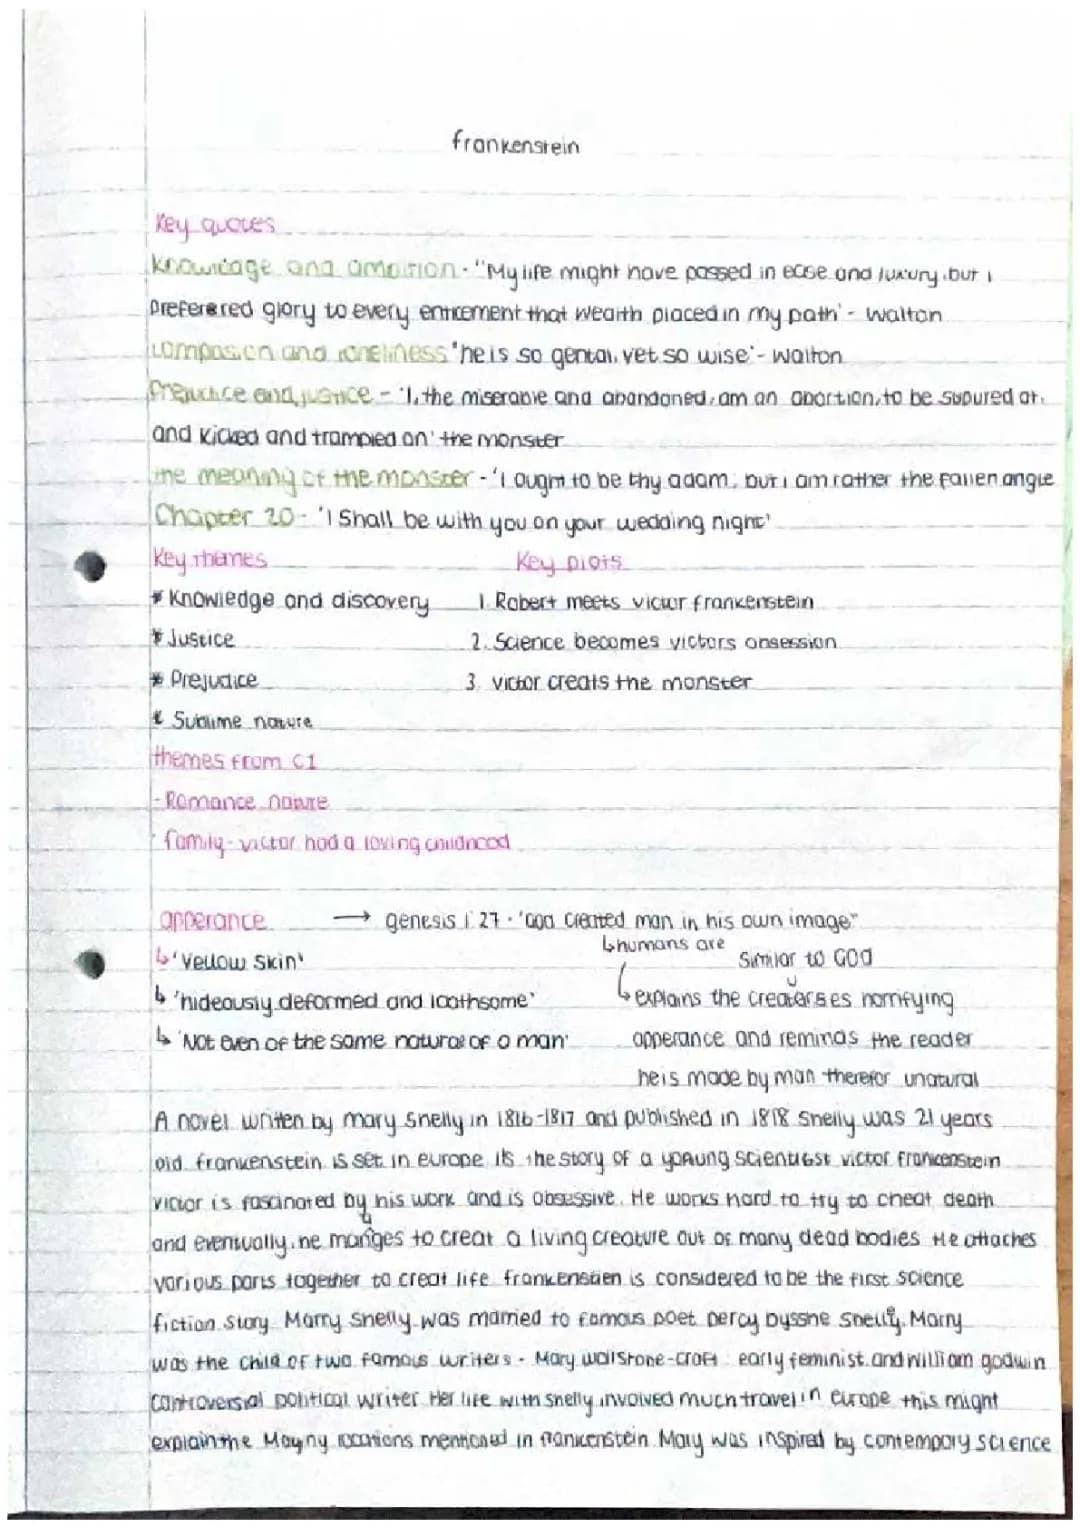 frankenstein
Key quotes
Knowledge and ambition - "My life might have passed in ease and luxury, but i
preferered glory to every enticement that wealth placed in my path' - Walton
compasion and loneliness 'he is so gental, yet so wise' - Walton
Prejudice and justice - 'I, the miserable and abandoned, am an abortion, to be spured at,
and kicked and trampled on' the monster
the meaning of the monster - 'I ought to be thy adam, but i am rather the fallen angle
Chapter 20 - 'I Shall be with you on your wedding night'
Key themes Key plots
* Knowledge and discovery 1. Robert meets victor frankenstein
* Justice 2. Science becomes victors obsession
* Prejudice 3. victor creats the monster
* Sublime nature
themes from C1
- Romance nature
- family - victor had a loving childhood
apperance → genesis 1:27 - 'God created man in his own image"
↳ 'Yellow skin' ↳ humans are similar to GOD
↳ 'hideously deformed and loathsome' ↳ explains the horrifying
↳ 'Not even of the same nature of a man' apperance and reminds the reader
he is made by man therefor unatural
A novel written by mary Shelly in 1816-1817 and published in 1818 Shelly was 21 years
old frankenstein is set in europe its the story of a young scientist victor frankenstein
victor is fascinated by his work and is obsessive. He works hard to try to cheat death
and eventually, he manages to creat a living creature out of many dead bodies He attaches
various parts together to creat life frankenstien is considered to be the first science
fiction story Marry Shelly was married to famous poet percy bysshe Shelly. Marry
was the child of two famous writers - Mary wollstone-croft: early feminist and William godwin
controversial political writer Her life with Shelly involved much travel in europe this might
explain the many locations mentioned in frankenstein Mary was inspired by contempory science